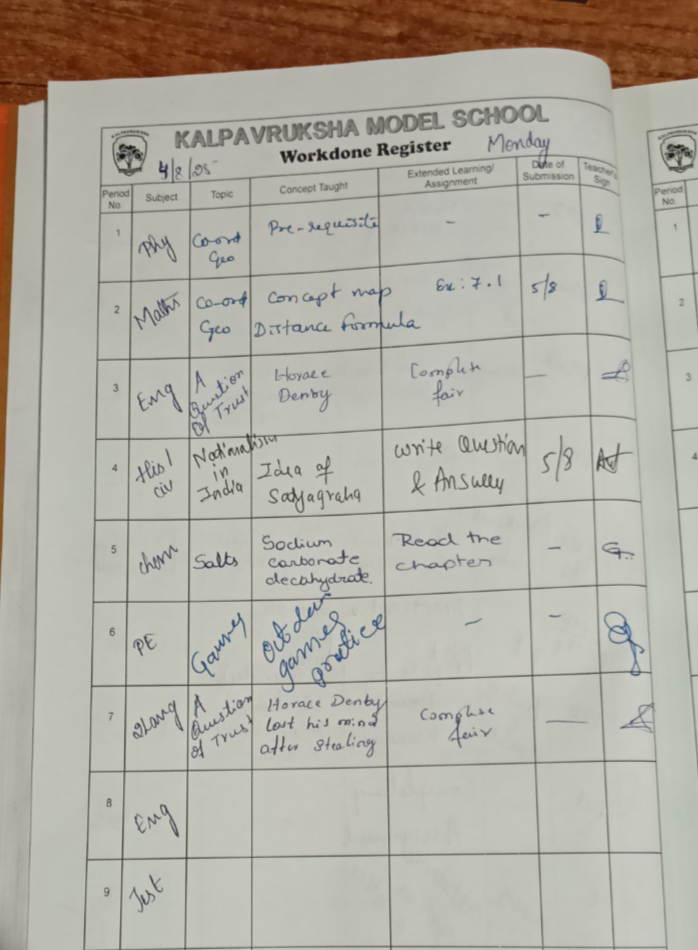 KALPAVRUKSHA MODEL SCHOOL
4/8/25 Workdone Register Monday
Period No. Subject Topic Concept Taught Extended Learning/ Assignment Date of Submission Teacher's Sign.
1 Phy Co-ord Geo Pre-requisite - -
2 Maths Co-ord Geo Concept map Distance formula Ex: 7.1 5/8
3 Eng A Question Of Trust Horace Denby fair -
4 His/ civ Nationalism in India Idea of Satyagraha Write Question & Answers 5/8
5 chem Salts Sodium carbonate decahydrate. Read the chapter -
6 PE Games Out door games practice - -
7 A Question of Trust Horace Denby lost his mind after stealing fair -
8 Eng
9 Test
KALPAVRUKSHA
Period No.
1
2
3
4